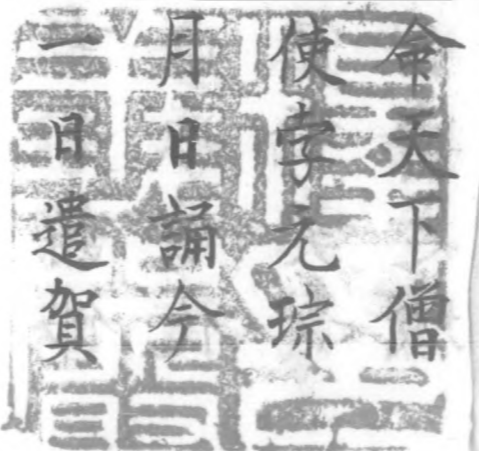 命天下僧
使李元琮
月日誦今
一日遣賀